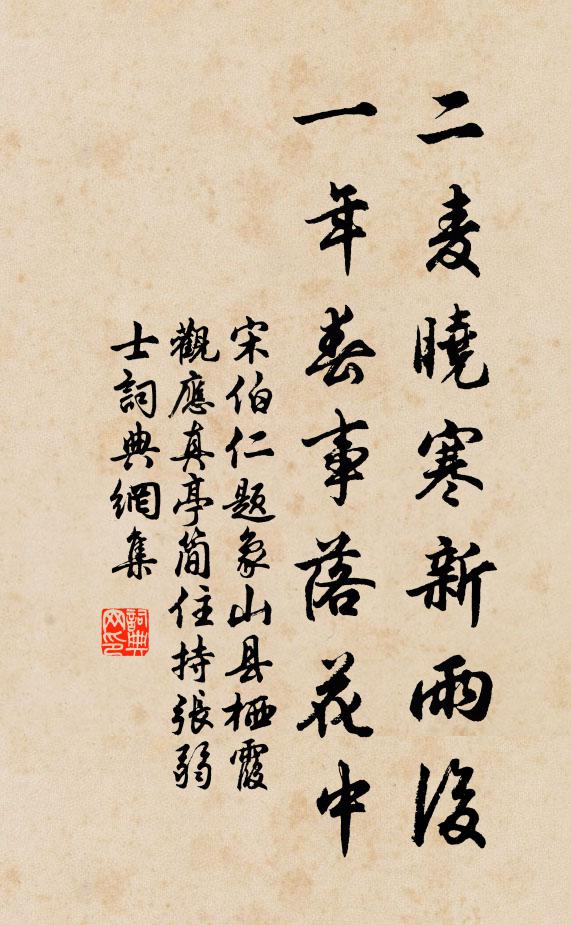 二麦曉寒新雨後
一年春事落花中
宋伯仁题象山县栖霞
觀應真亭简住持張弱
士詞典網集
詞典网印